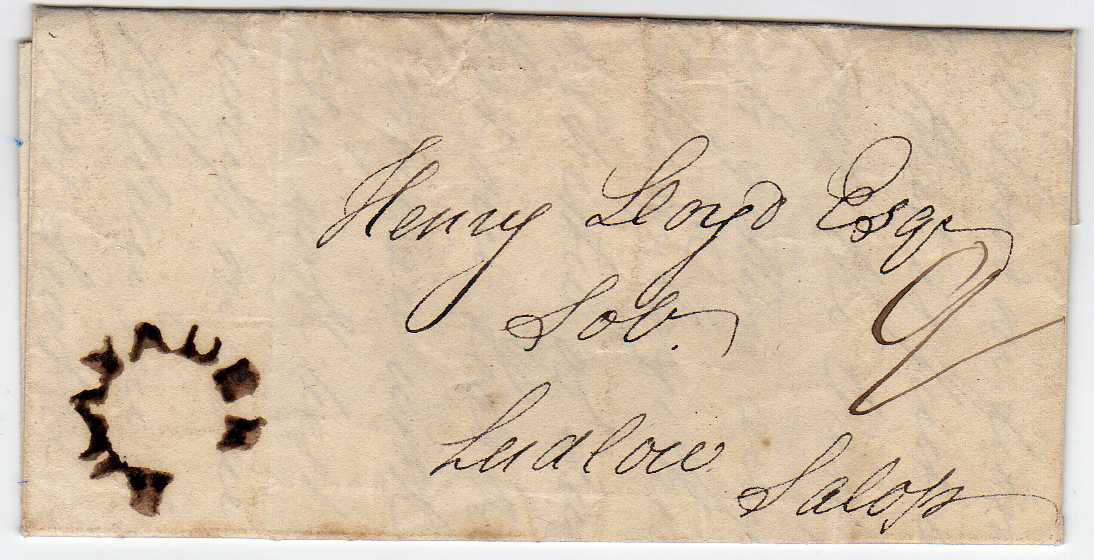 Henry Lloyd Esqr
Sol.
9
Ludlow
Salop